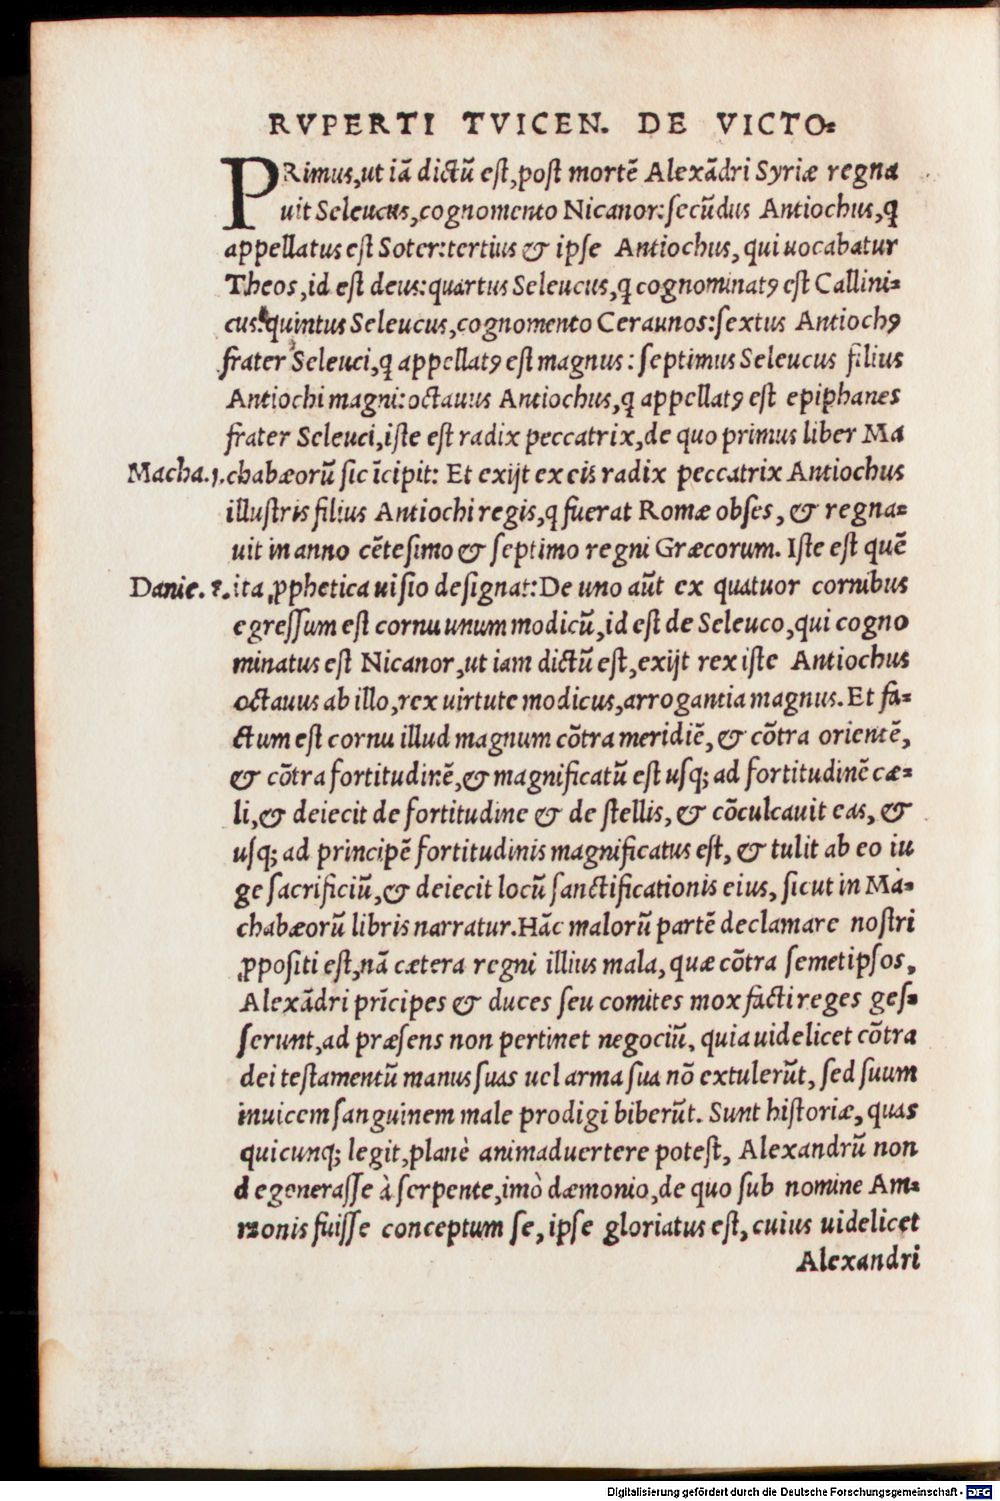 RVPERTI TVICEN. DE VICTO⸗
PRimus,ut iā dictū est,post mortē Alexādri Syriæ regna
uit Seleucus,cognomento Nicanor:secūdus Antiochus,q
appellatus est Soter:tertius & ipse Antiochus, qui uocabatur
Theos,id est deus:quartus Seleucus,q cognominatꝰ est Callini⸗
cus:quintus Seleucus,cognomento Ceraunos:sextus Antiochꝰ
frater Seleuci,q appellatꝰ est magnus: septimus Seleucus filius
Antiochi magni:octauus Antiochus,q appellatꝰ est epiphanes
frater Seleuci,iste est radix peccatrix,de quo primus liber Ma
Macha.1. chabæorū sic īcipit: Et exijt ex eis radix peccatrix Antiochus
illustris filius Antiochi regis,q fuerat Romæ obses, & regna⸗
uit in anno cētesimo & septimo regni Græcorum. Iste est quē
Danie. 8. ita ꝓphetica uisio designat:De uno aūt ex quatuor cornibus
egressum est cornu unum modicū,id est de Seleuco,qui cogno
minatus est Nicanor,ut iam dictū est,exijt rex iste Antiochus
octauus ab illo,rex uirtute modicus,arrogantia magnus. Et fa⸗
ctum est cornu illud magnum cōtra meridiē, & cōtra orientē,
& cōtra fortitudinē,& magnificatū est usq; ad fortitudinē cæ⸗
li,& deiecit de fortitudine & de stellis, & cōculcauit eas, &
usq; ad principē fortitudinis magnificatus est, & tulit ab eo iu
ge sacrificiū,& deiecit locū sanctificationis eius, sicut in Ma⸗
chabæorū libris narratur.Hāc malorū partē declamare nostri
ꝓpositi est,nā cætera regni illius mala, quæ cōtra semetipsos,
Alexādri prīcipes & duces seu comites mox facti reges ges⸗
serunt,ad præsens non pertinet negociū, quia uidelicet cōtra
dei testamentū manus suas uel arma sua nō extulerūt, sed suum
inuicem sanguinem male prodigi biberūt. Sunt historiæ, quas
quicunq; legit,planè animaduertere potest, Alexandrū non
degenerasse à serpente,imò dæmonio,de quo sub nomine Am⸗
monis fuisse conceptum se, ipse gloriatus est, cuius uidelicet
Alexandri
Digitalisierung gefördert durch die Deutsche Forschungsgemeinschaft - DFG